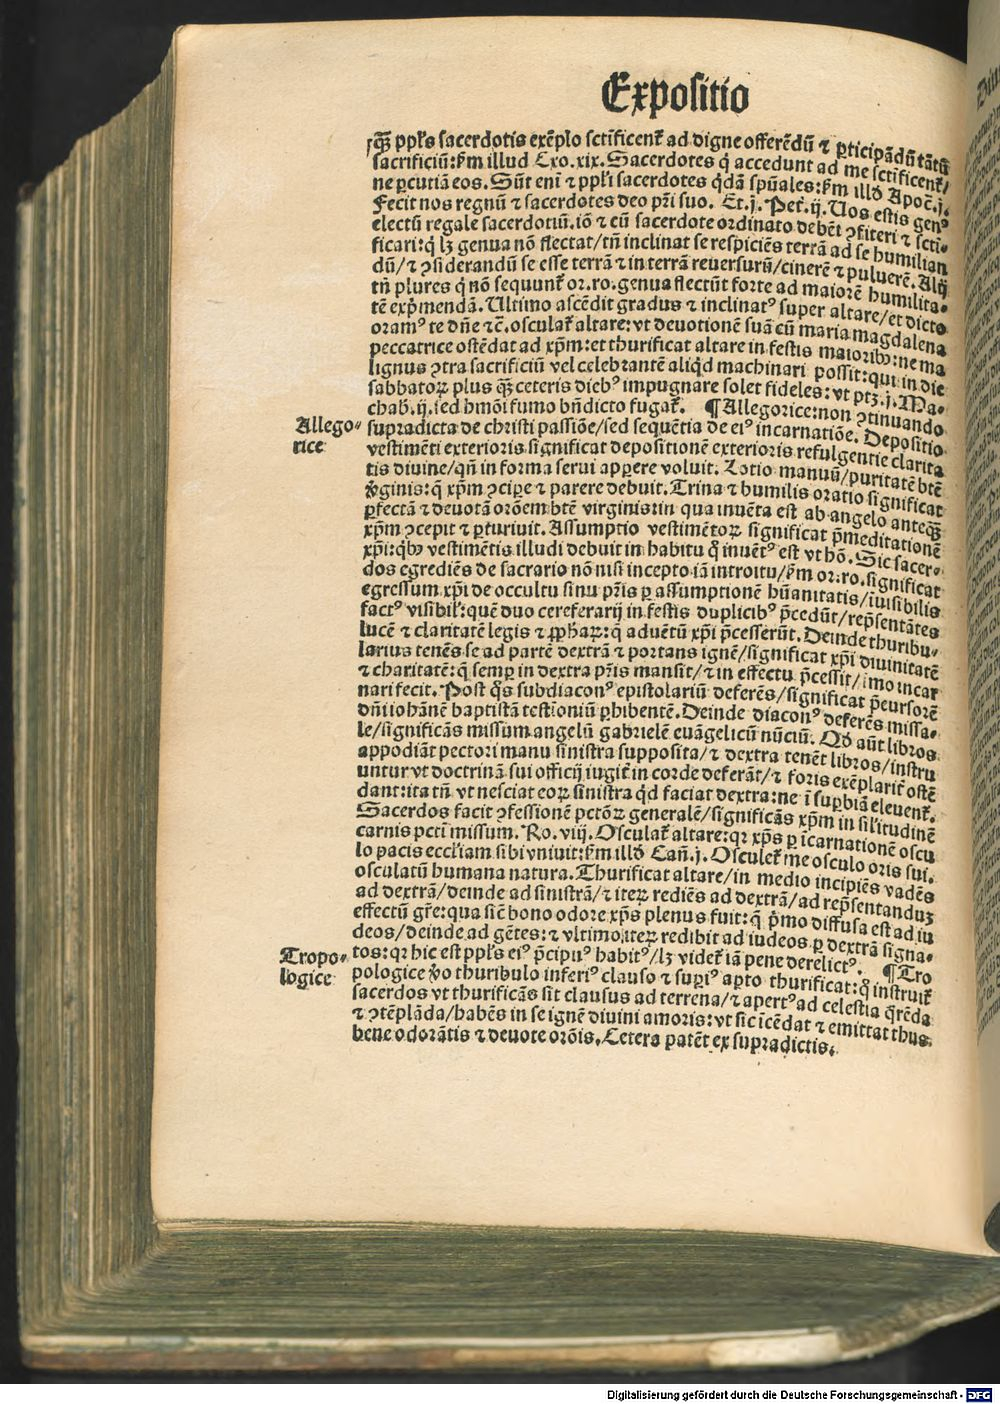 Expositio
ꝙ̃ ppl̓s sacerdotis exẽplo sctificent᷑ ad digne offerẽdũ ⁊ ꝑticipãdũ tãtũ
sacrificiũ: ẜm illud Exo.xix. Sacerdotes q̇ accedunt ad me sctificent᷑/
ne ꝑcutiã eos. Sũt eni ⁊ ppl̓i sacerdotes q̇dã spũales: ẜm illđ Apoc̃.j.
Fecit nos regnũ ⁊ sacerdotes deo pr̃i suo. Et.j. Pet̃.ij. Uos estis genꝰ
electũ regale sacerdotiũ. iõ ⁊ cũ sacerdote ordinato debẽt ꝯfiteri ⁊ scti-
ficari: q̇ lꝫ genua nõ flectat/tñ inclinat se respiciẽs terrã ad se humilian
dũ/⁊ ꝯsiderandũ se esse terrã ⁊ in terrã reuersurũ/cinerẽ ⁊ puluerẽ. Alij
tñ plures q̇ nõ sequunt᷑ or.ro. genua flectũt forte ad maiorẽ humilita-
tẽ exp̃mendã. Ultimo ascẽdit gradus ⁊ inclinatꝰ super altare/et dicto
oramꝰ te dñe ⁊c̃. osculat᷑ altare: vt deuotionẽ suã cũ maria magdalena
peccatrice ostẽdat ad xp̃m: et thurificat altare in festis maioribꝫ: ne ma
lignus ꝯtra sacrificiũ vel celebrantẽ aliq̇d machinari possit: qui in die
sabbatoꝝ plus ꝙ̃ ceteris diebꝰ impugnare solet fideles: vt ptꝫ.j. Ma-
chab̃.ij. sed hmõi fumo bñdicto fugat᷑. ¶ Allegorice: non ꝯtinuando
supradicta de christi passiõe/sed sequẽtia de eiꝰ incarnatiõe. Depositio
vestimẽti exterioris significat depositionẽ exterioris refulgentie clarita
tis diuine/qñ in forma serui apꝑere voluit. Lotio manuũ/puritatẽ btẽ
v̓ginis: q̃ xp̃m ꝯciꝑe ⁊ parere debuit. Trina ⁊ humilis oratio significat
ꝑfectã ⁊ deuotã orõem btẽ virginis: in qua inuẽta est ab angelo anteꝙ̃
xp̃m ꝯcepit ⁊ ꝑturiuit. Assumptio vestimẽtoꝝ significat p̃meditationẽ
xp̃i: q̇bꝫ vestimẽtis illudi debuit in habitu q̇ inuẽtꝰ est vt hõ. Sic sacer-
dos egrediẽs de sacrario nõ nisi incepto iã introitu/ẜm or.ro. significat
egressum xp̃i de occultu sinu pr̃is ꝑ assumptionẽ hũanitatis/ĩuisibilis
factꝰ visibil̓: quẽ duo cereferarij in festis duplicibꝰ p̃cedũt/rep̃sentãtes
lucẽ ⁊ claritatẽ legis ⁊ ꝓphaꝝ: q̃ aduẽtũ xp̃i p̃cesserũt. Deinde thuribu-
larius tenẽs se ad partẽ dextrã ⁊ portans ignẽ/significat xp̃i diuinitatẽ
⁊ charitatẽ: q̃ semꝑ in dextra pr̃is mansit/⁊ in effectu p̃cessit/imo incar
nari fecit. Post q̊s subdiaconꝰ epistolariũ deferẽs/significat p̃cursorẽ
dñi iohãnẽ baptistã testioniũ ꝑhibentẽ. Deinde diaconꝰ deferẽs missa-
le/significãs missum angelũ gabrielẽ euãgelicũ nũciũ. Qđ aũt libros
appodiãt pectori manu sinistra supposita/⁊ dextra tenẽt libros/instru
untur vt doctrinã sui officij iugit̃ in corde deferãt/⁊ foris exẽplarit̃ ostẽ
dant: ita tñ vt nesciat eoꝝ sinistra q̇d faciat dextra: ne ĩ suꝑbiã eleuent᷑.
Sacerdos facit ꝯfessionẽ pctõꝝ generalẽ/significãs xp̃m in sil̓itudinẽ
carnis pcti missum. Ro. viij. Osculat᷑ altare: qꝛ xp̃s ꝑ ĩcarnationẽ oscu
lo pacis eccl̓iam sibi vniuit: ẜm illđ Cañ.j. Osculet᷑ me osculo oris sui.
osculatũ humana natura. Thurificat altare/in medio incipiẽs vadẽs
ad dextrã/deinde ad sinistrã/⁊ iteꝝ rediẽs ad dextrã/ad rep̃sentanduꝫ
effectũ gr̃e: qua siẽ bono odore xp̃s plenus fuit: q̃ p̓mo diffusa est ad iu
deos/deinde ad gẽtes: ⁊ vltimo iteꝝ redibit ad iudeos ꝑ dextrã signa-
tos: qꝛ hic est ppl̓s eiꝰ p̃cipuꝰ habitꝰ/lꝫ videt᷑ iã pene derelictꝰ. ¶ Tro
pologice v̓o thuribulo inferiꝰ clauso ⁊ suꝑiꝰ aꝑto thurificat: q̃ instruit᷑
sacerdos vt thurificãs sit clausus ad terrena/⁊ apertꝰ ad celestia q̃rẽda
⁊ ꝯtẽplãda/habẽs in se ignẽ diuini amoris: vt sic ĩcẽdat ⁊ emittat thus
bene odorãtis ⁊ deuote orõis. Cetera patẽt ex supradictis.
Allego-
rice
Tropo-
logice
Digitalisierung gefördert durch die Deutsche Forschungsgemeinschaft - DFG